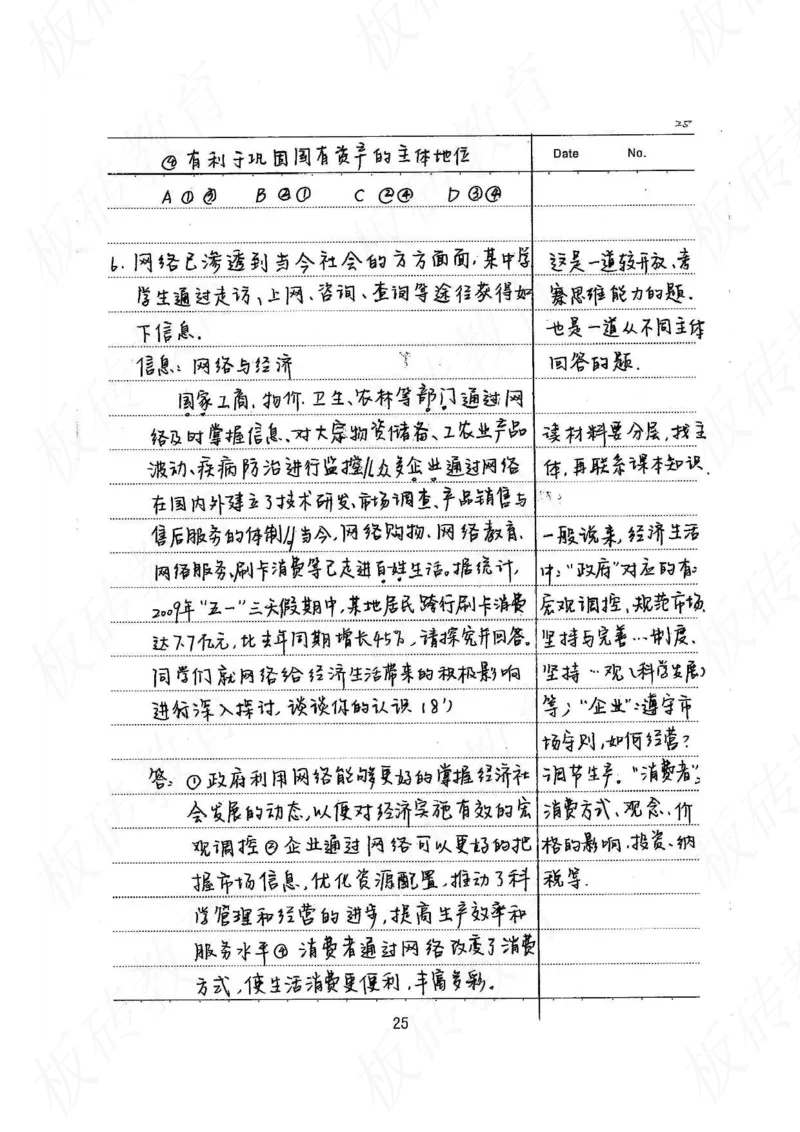 25
④有利于巩固国有资产的主体地位
Date No.
A ①③ B ②① C ②④ D ③④
6. 网络已渗透到当今社会的方方面面,某中学
学生通过走访、上网、咨询、查询等途径获得如
下信息.
信息:网络与经济
国家工商、物价、卫生、农林等部门通过网
络及时掌握信息、对大宗物资储备、工农业产品
波动、疾病防治进行监控//众多企业通过网络
在国内外建立了技术研发、市场调查、产品销售与
售后服务的体制//当今,网络购物、网络教育、
网络服务、刷卡消费等已走进百姓生活。据统计,
2009年“五一”三天假期中,某地居民跨行刷卡消费
达7.7亿元,比去年同期增长45%,请探究并回答。
同学们就网络给经济生活带来的积极影响
进行深入探讨,谈谈你的认识(8')
答:①政府利用网络能够更好的掌握经济社
会发展的动态,以便对经济实施有效的宏
观调控②企业通过网络可以更好的把
握市场信息,优化资源配置,推动了科
学管理和经营的进步,提高生产效率和
服务水平④消费者通过网络改变了消费
方式,使生活消费更便利,丰富多彩。
这是一道较开放、考
察思维能力的题.
也是一道从不同主体
回答的题.
读材料要分层,找主
体,再联系课本知识.
一般说来,经济生活
中:“政府”对应的有:
宏观调控、规范市场、
坚持与完善…制度、
坚持…观(科学发展)
等;“企业”:遵守市
场守则,如何经营?
调节生产。“消费者”:
消费方式、观念、价
格的影响、投资、纳
税等.
25
板砖教育